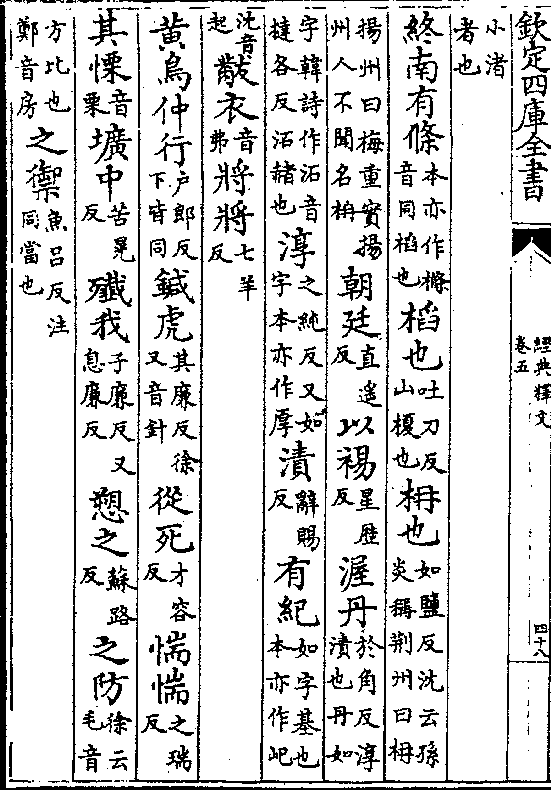 欽定四庫全書
經典釋文
卷五
四十八
小渚者也
終南有條本亦作樤音同槄也槄也吐刀反山榎也枏也如鹽反沈云孫炎稱荆州曰枏
揚州曰梅重實揚州人不聞名枏朝廷直遥反以裼星歴反渥丹於角反淳漬也丹如
字韓詩作沰音撻各反沰赭也淳之純反又如字本亦作厚漬辭賜反有紀如字基也本亦作屺
沈音起黻衣音弗將將七羊反
黄鳥仲行户郎反下皆同鍼虎其廉反徐又音針從死才容反惴惴之瑞反
其慄音栗壙中苦晃反殲我子廉反又息廉反愬之蘇路反之防徐云毛音
方比也鄭音房之禦魚呂反注同當也